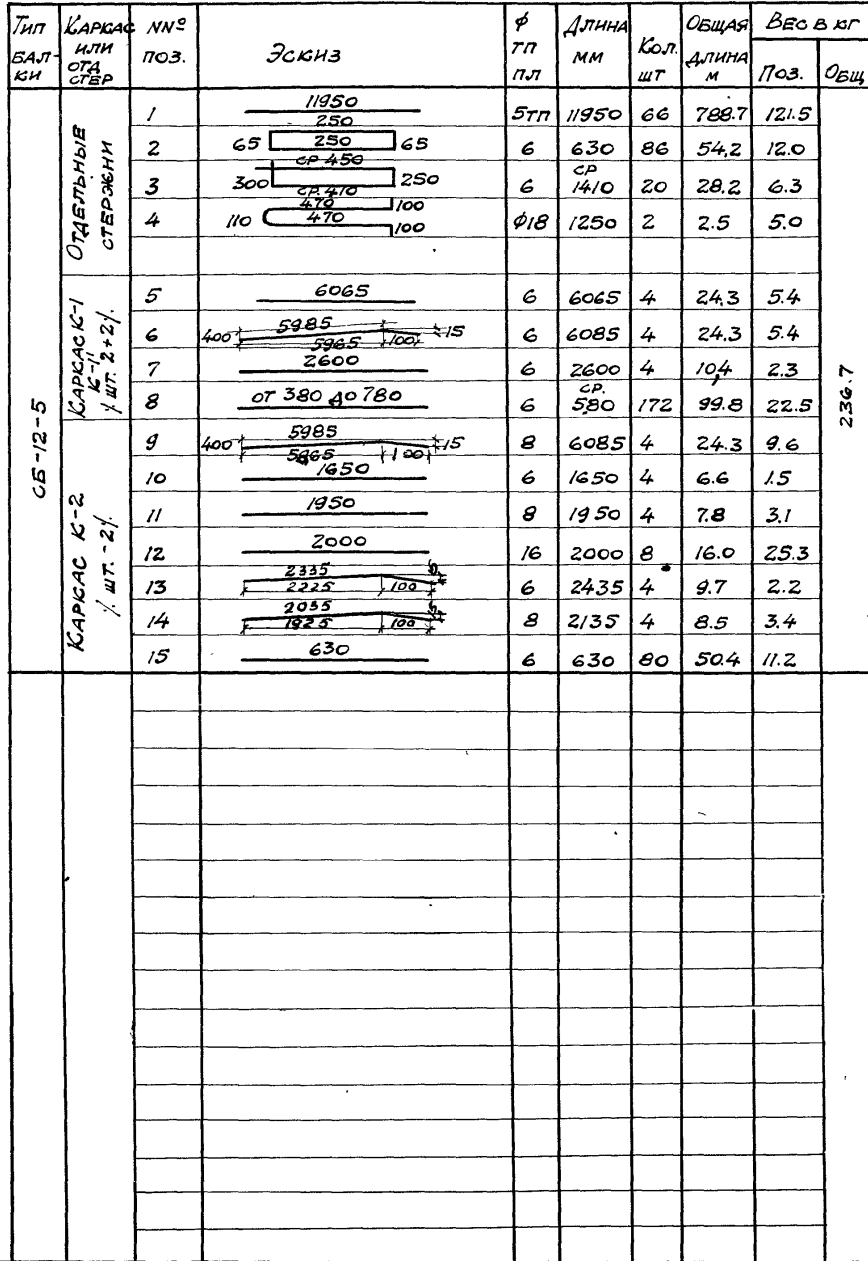 Тип балки | Каркас или отд стер | NNº поз. | Эскиз | ϕ тп пл | Длина мм | Кол. шт | Общая длина м | Вес в кг Поз. | Общ
СБ-12-5
236.7
Отдельные стержни
1 | 11950 | 5тп | 11950 | 66 | 788.7 | 121.5
2 | 250 65 250 65 | 6 | 630 | 86 | 54.2 | 12.0
3 | ср 450 300 250 ср. 410 | 6 | ср 1410 | 20 | 28.2 | 6.3
4 | 470 100 110 470 100 | ϕ18 | 1250 | 2 | 2.5 | 5.0
Каркас К-1 К-1" /шт. 2+2/.
5 | 6065 | 6 | 6065 | 4 | 24.3 | 5.4
6 | 400 5985 15 5965 100 | 6 | 6085 | 4 | 24.3 | 5.4
7 | 2600 | 6 | 2600 | 4 | 10,4 | 2.3
8 | от 380 до 780 | 6 | ср. 580 | 172 | 99.8 | 22.5
Каркас К-2 /. шт. - 2/.
9 | 400 5985 15 5965 100 | 8 | 6085 | 4 | 24.3 | 9.6
10 | 1650 | 6 | 1650 | 4 | 6.6 | 1.5
11 | 1950 | 8 | 1950 | 4 | 7.8 | 3.1
12 | 2000 | 16 | 2000 | 8 | 16.0 | 25.3
13 | 2335 2225 100 | 6 | 2435 | 4 | 9.7 | 2.2
14 | 2035 1925 100 | 8 | 2135 | 4 | 8.5 | 3.4
15 | 630 | 6 | 630 | 80 | 50.4 | 11.2